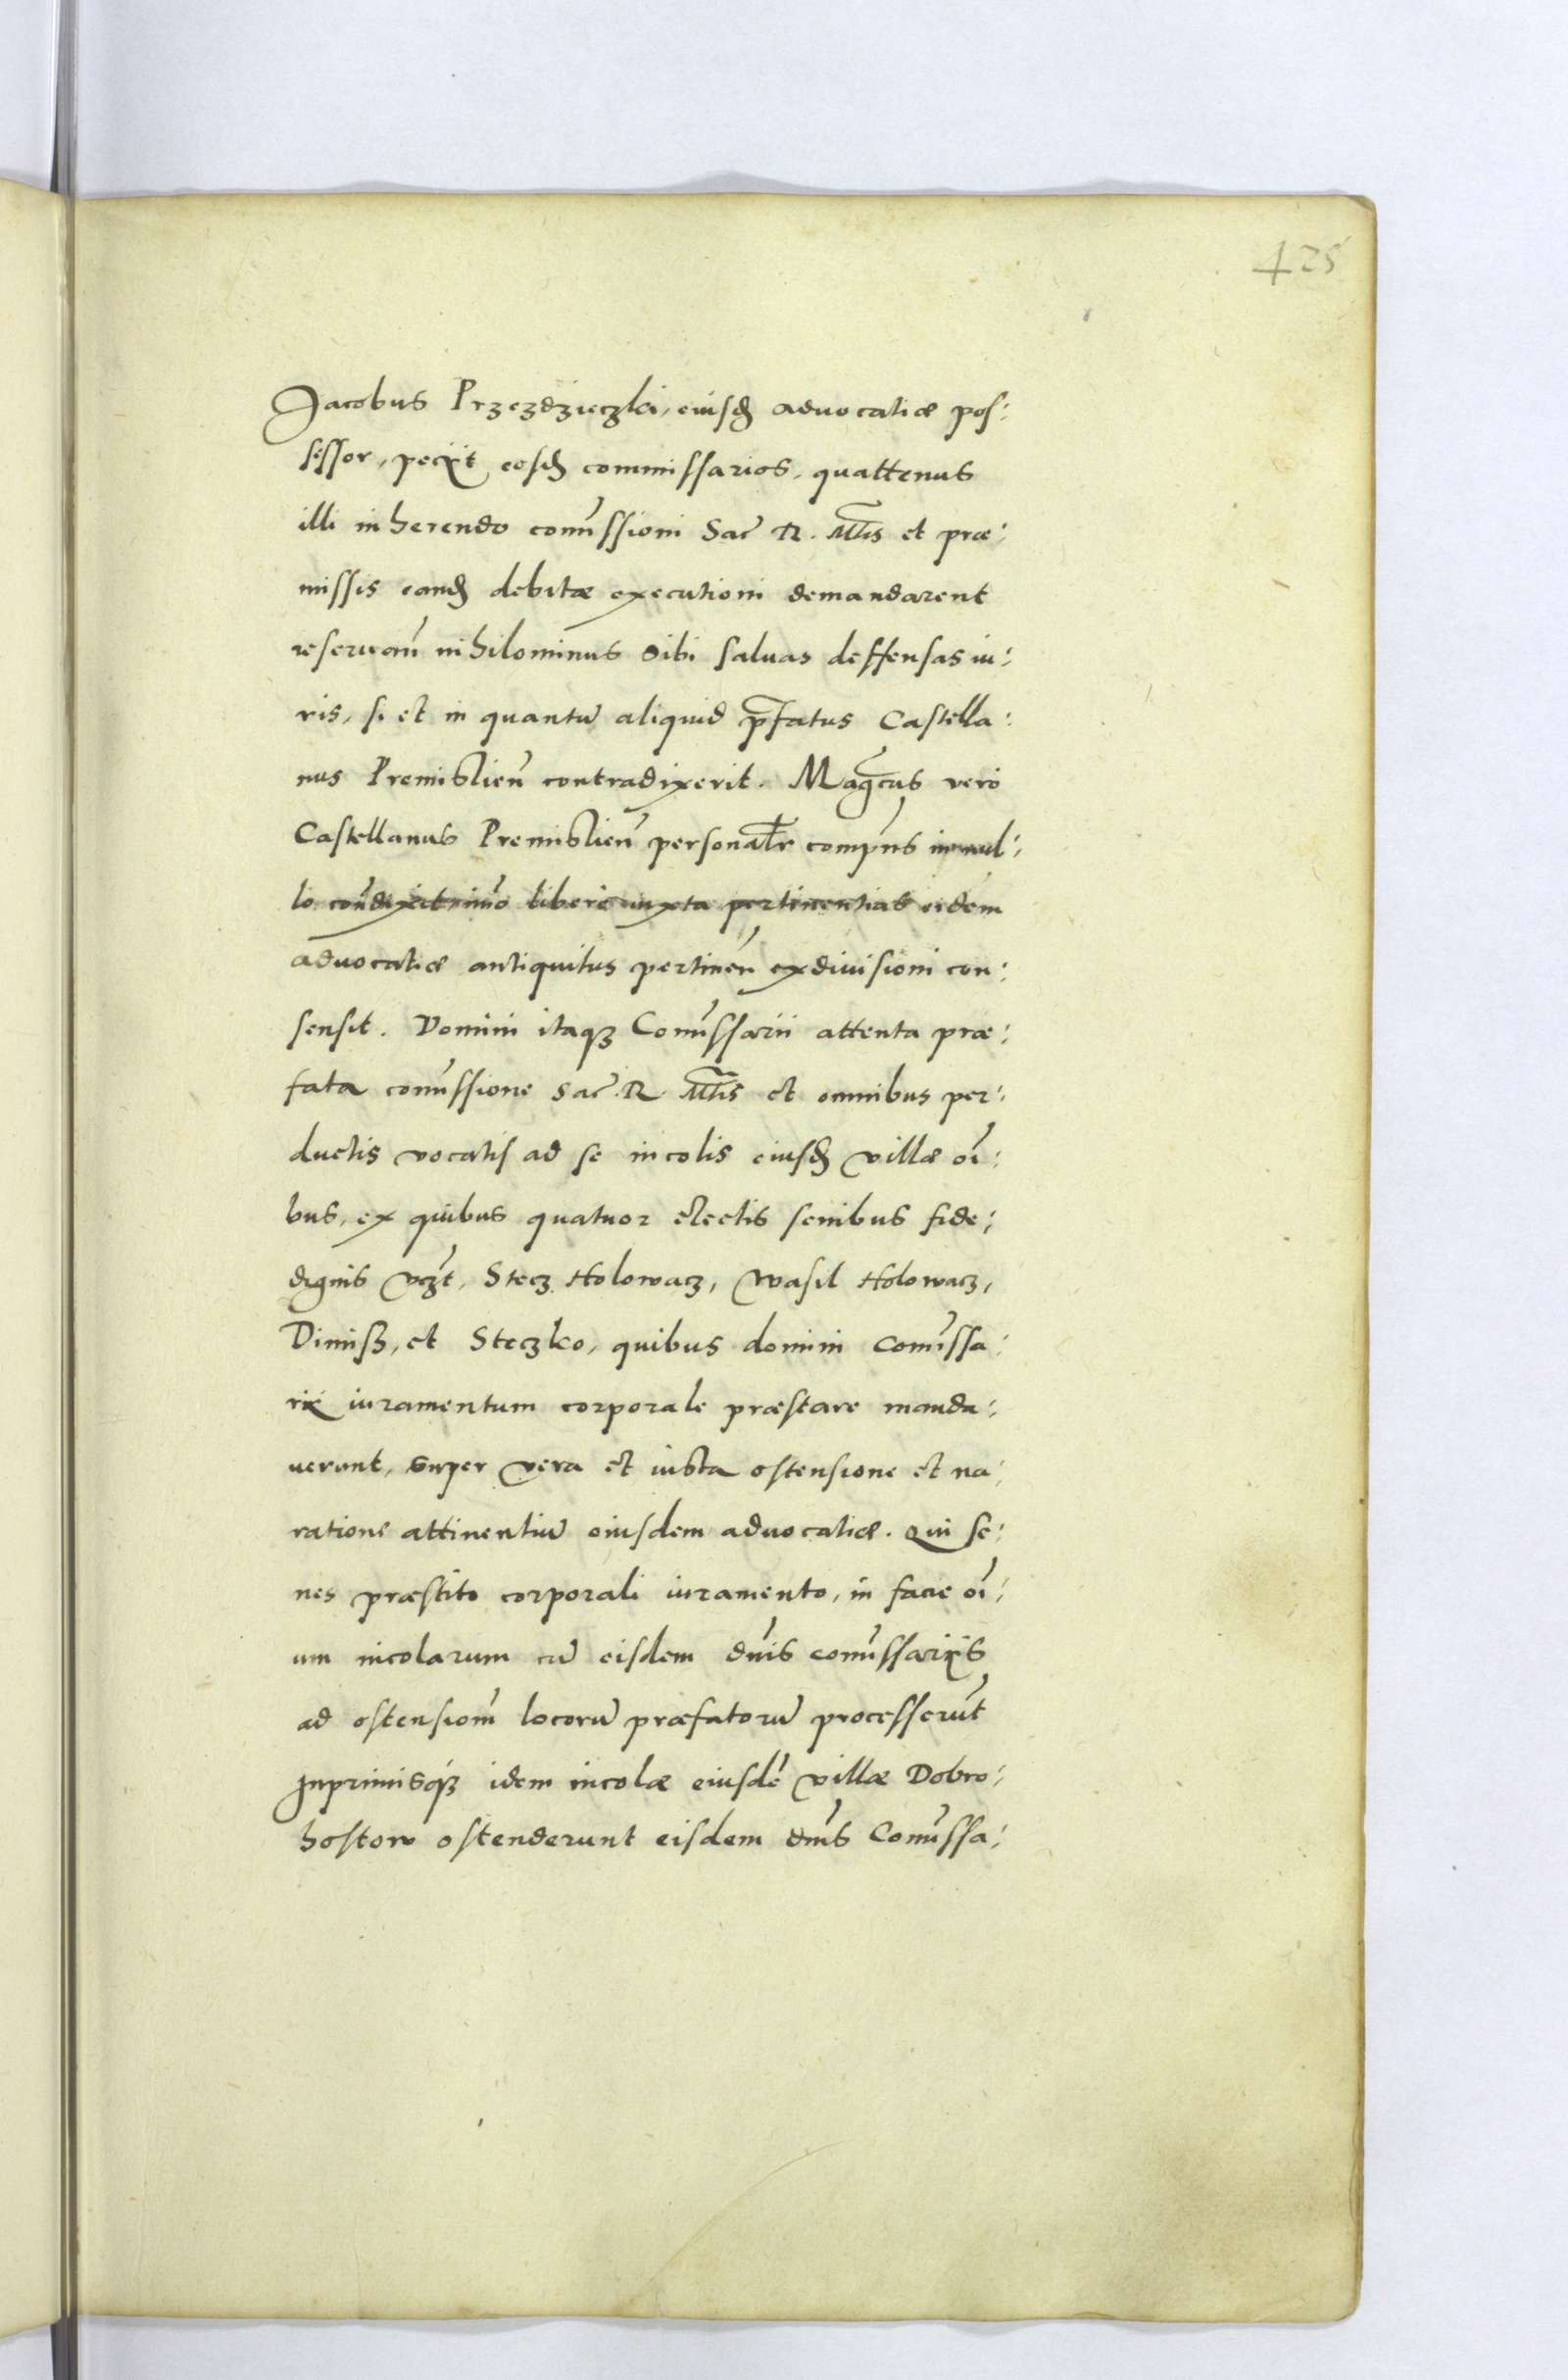 425
Jacobus Przezdzieczki, eiusd aduocatiæ pos:
sessor, peciit eosd commissarios, quattenus
illi inherendo comissioni Sac R. Mtis et præ:
missis eand debitæ executioni demandarent
reseruam nihilominus sibi saluas deffensas iu:
ris, si et in quantū aliquid pfatus Castella:
nus Premislien contradixerit. Magcus vero
Castellanus Premislien personalr compns in nul:
lo condixit imo libere iuxta pertinentias eidem
aduocatiæ antiquitus pertinen exdiuisioni con:
sensit. Domini itaqз Comissarii attenta præ:
fata comissione Sac. R Mtis et omnibus per:
ductis vocatis ad se incolis eiusd villæ oi:
bus, ex quibus quatuor electis senibus fide:
dignis vczt, Stecz Holowacz, Wasil Holowacz,
Dimisз, et Steczko, quibus domini Comissa:
rii iuramentum corporale præstare manda:
uerunt, super vera et iusta ostensione et na:
ratione attinentiū eiusdem aduocatiæ. Qui se:
nes præstito corporali iuramento, in facie oi:
um incolarum cū eisdem dnis comissariis
ad ostensionē locorū præfatorū processerūt
Inprimisqз idem incolæ eiusdē villæ Dobro:
hostow ostenderunt eisdem dnis Comissa: